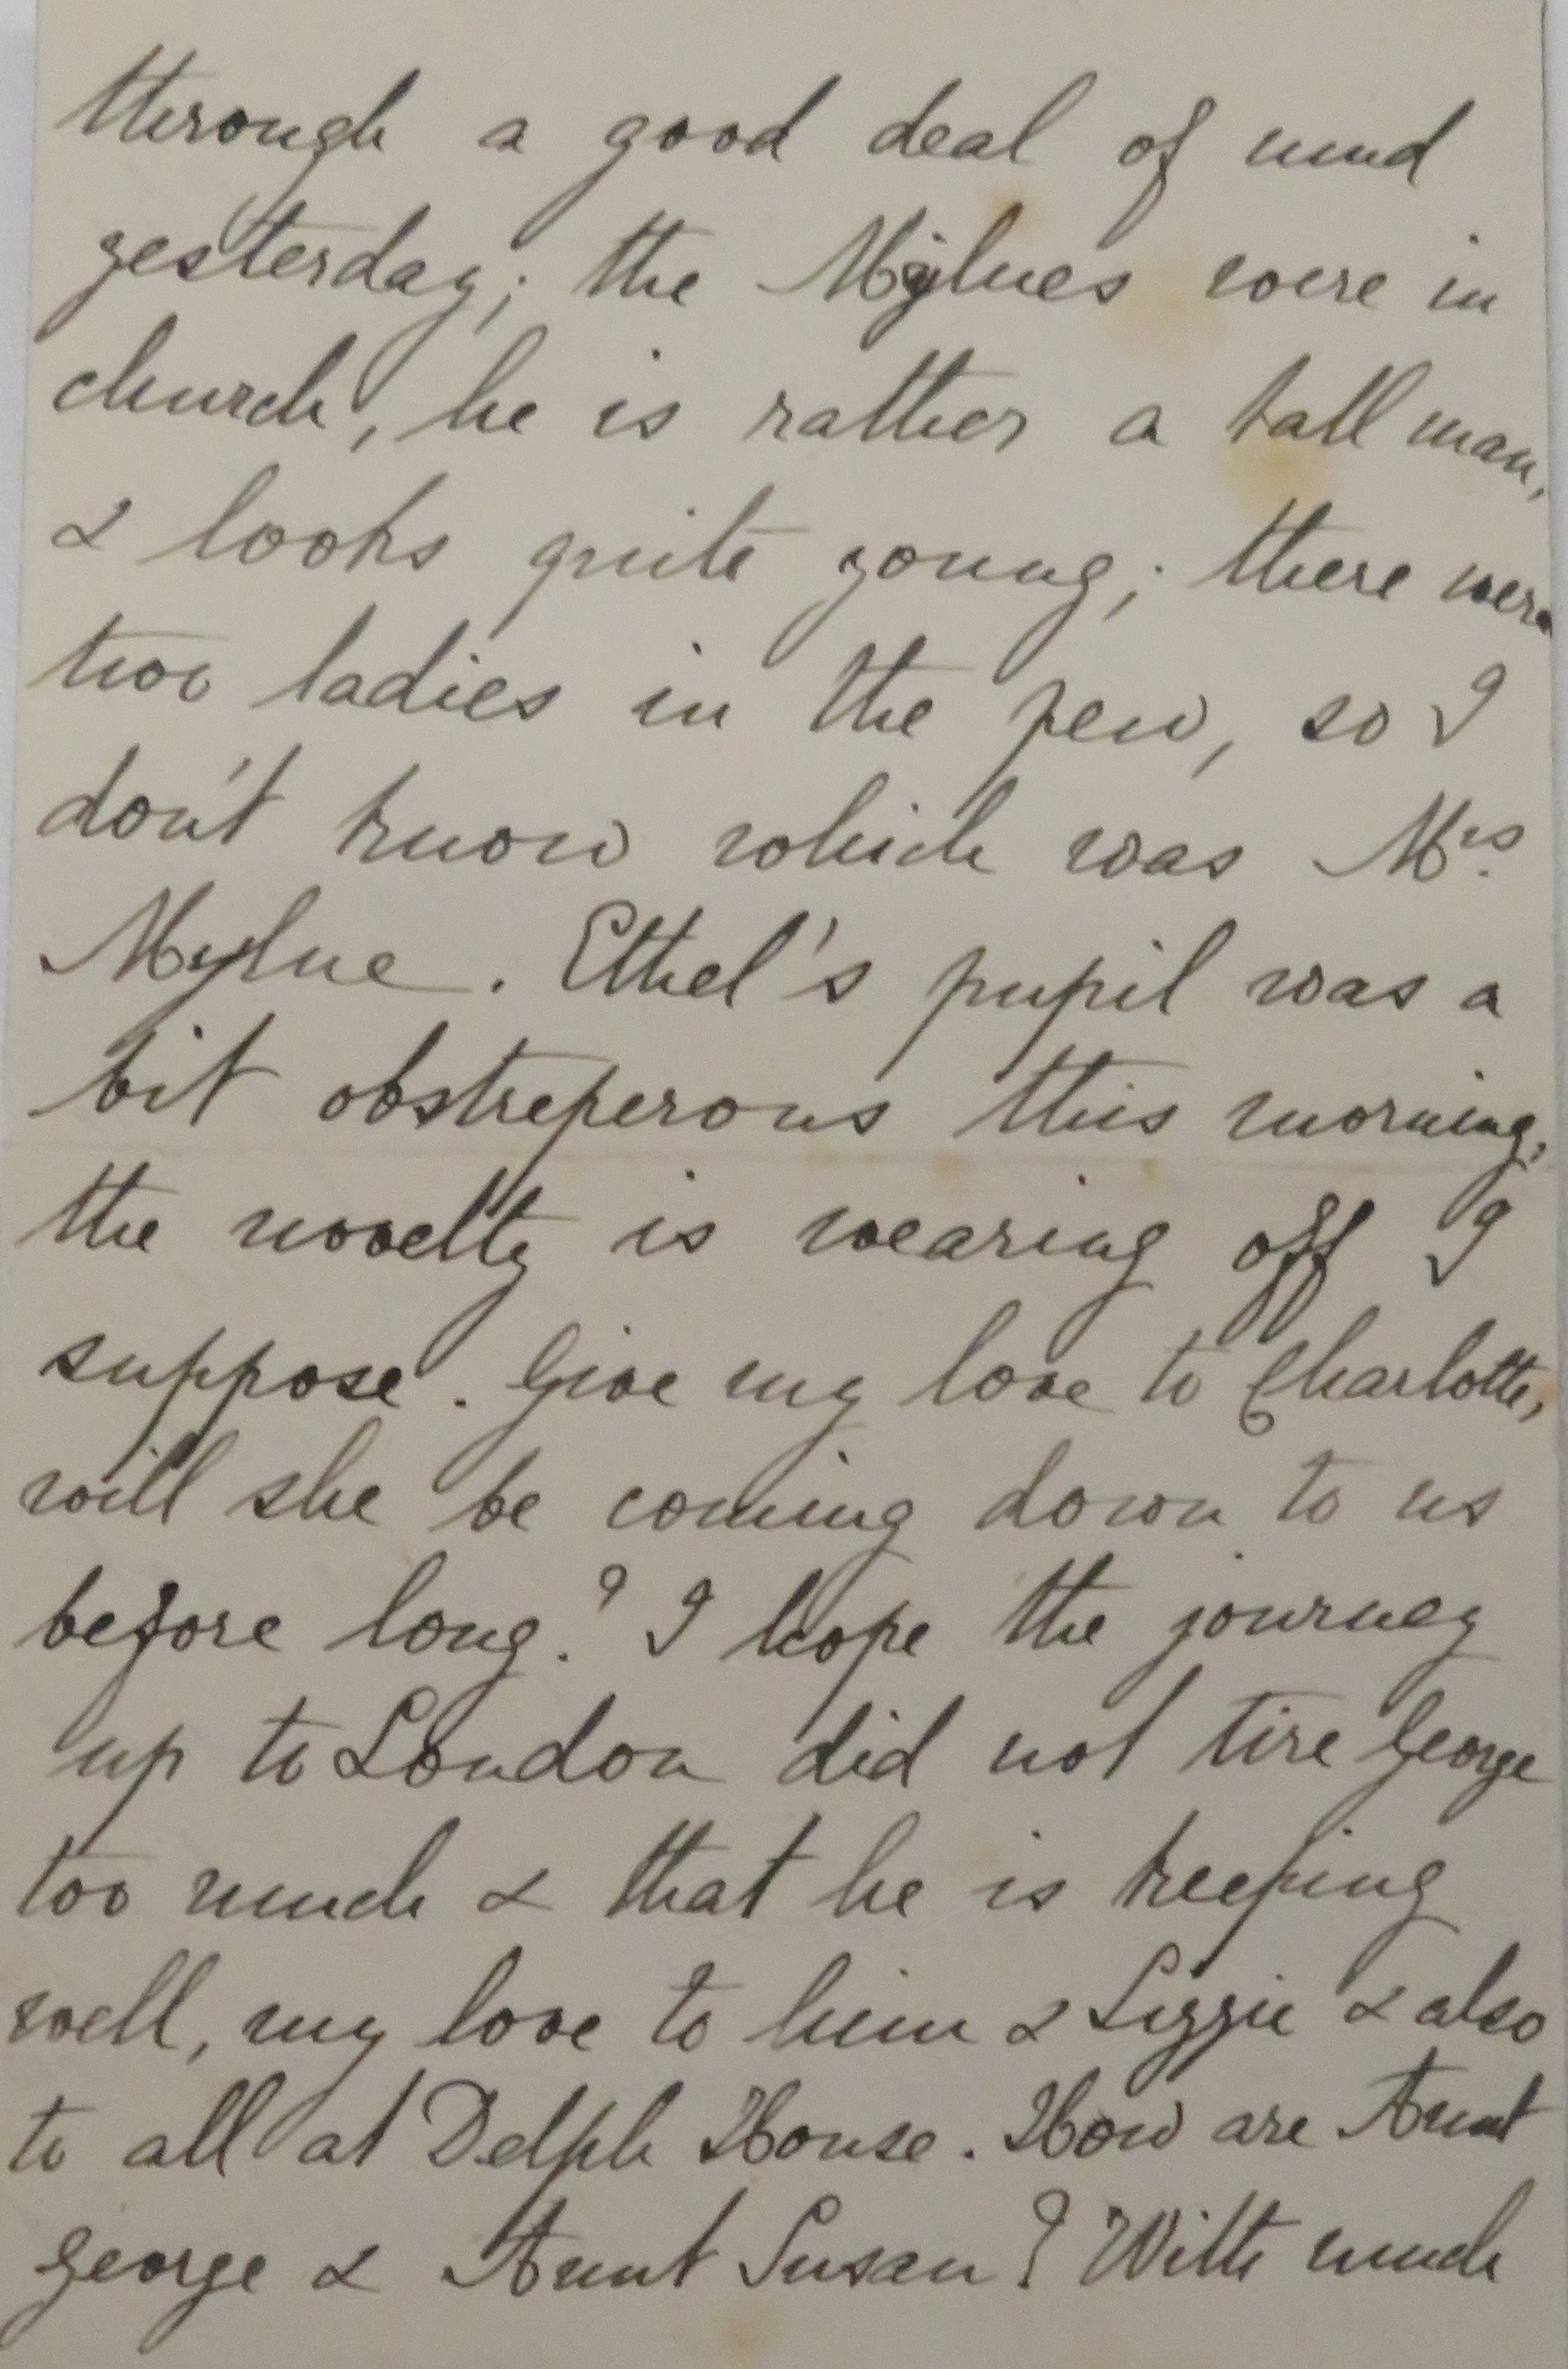 through a good deal of mud
yesterday; the Mylnes were in
church, he is rather a tall man,
& looks quite young; there were
two ladies in the pew, so I
don't know which was Mrs.
Mylne. Ethel's pupil was a
bit obstreperous this morning,
the novelty is wearing off I
suppose. Give my love to Charlotte,
will she be coming down to us
before long? I hope the journey
up to London did not tire George
too much & that he is keeping
well, my love to him & Lizzie & also
to all at Delph House. How are Aunt
George & Aunt Susan? With much